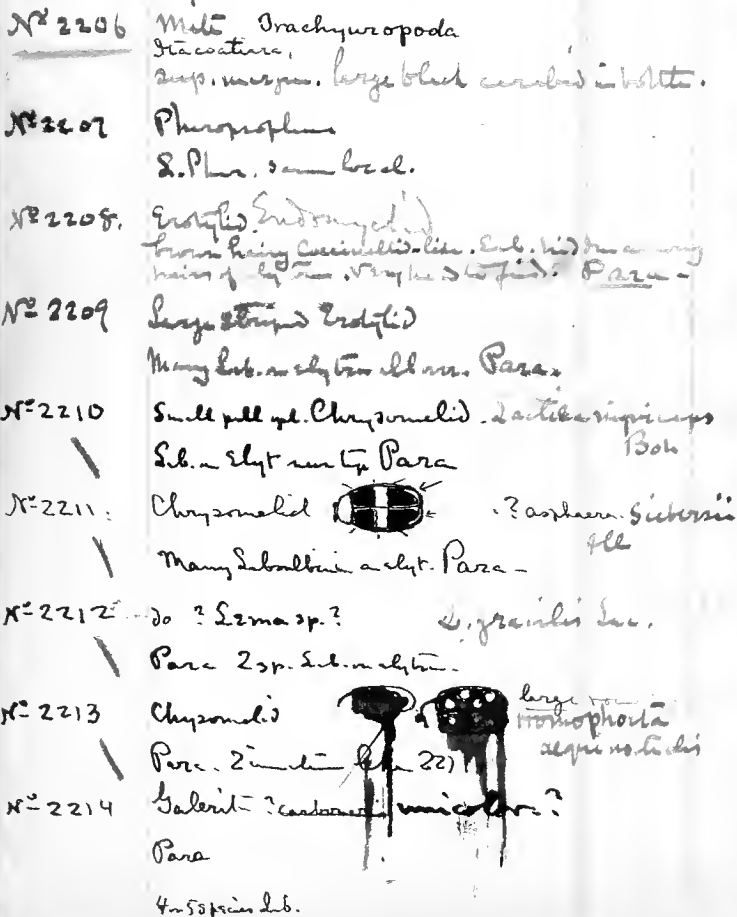 No 2206 Mite Trachyuropoda
Itacoatiara,
large black carabid in bottle.
No 2207 Pheropsophus
L. Pher. same local.
No 2208. Erotylid. Endomychid
brown hairy Coccinellid-like. Lab. hidden among
hairs of elytra. Very hard to find. Para -
No 2209 Large striped Erotylid
Many Lab. on elytra all over. Para.
No 2210 Small yel. Chrysomelid. Lactica
Boh
Lab. on Elyt near tip Para
No 2211. Chrysomelid ? asphaera. Siebersii
Ill
Many Laboulbenia on elyt. Para -
No 2212 do ? Lema sp.? L. gracilis Lac.
Para 2 sp. Lab. on elytra.
No 2213 Chrysomelid large
Homophoeta
aequinoctialis
Para. 2 like 2211
No 2214 Galerita ? unicolor?
Para
4 or 5 species Lab.